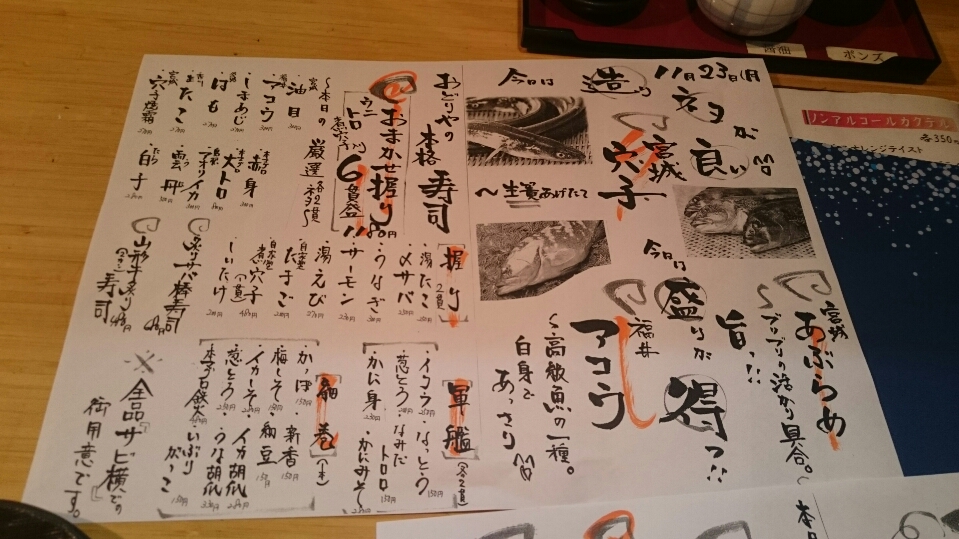 11月23日(月)
ネタが良い
宮城
あぶらめ
〜プリプリの活かり具合。
旨っ!!
今日は
盛りが得っ!!
福井
アコウ
〜高級魚の一種。
白身で
あっさり
今日は
造り
宮城
穴子
〜生簀あげたて
おどりやの
本格
寿司
おまかせ握り
ウニ
トロ
6貫盛
1180円
〜本日の
厳選
油目
アコウ
しまあじ
はも
生たこ
穴子焼霜
赤身
大トロ
子持イカ
雲丹
白子
握り
2貫
湯たこ
〆サバ
うなぎ
サーモン
湯えび
たまご
煮穴子
しいたけ
炙りサバ棒寿司
山形牛炙り
寿司
軍艦
(各2貫)
イクラ
なっとう
葱とろ
なみだ
トロロ
かに身
かにみそ
細巻
(1本)
かっぱ
新香
梅しそ
納豆
イカしそ
イカ胡瓜
葱とろ
うな胡瓜
本マグロ鉄火
いぶりがっこ
※全品サビ横での
御用意です。
醤油
ポンズ
ノンアルコールカクテル
各350円
オレンジテイスト